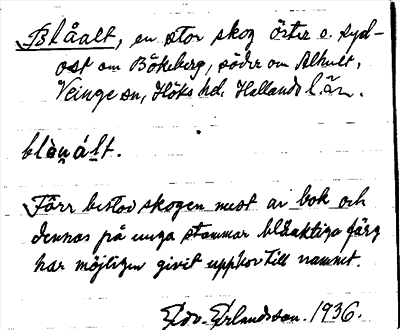 Blåalt, en stor skog öster o. syd-
ost om Bökeberg, söder om Alhult,
Veinge sn, Höks hd. Hallands län.
blànált.
Förr bestod skogen mest av bok och
dennas på unga stammar blåaktiga färg
har möjligen givit upphov till namnet.
Edv. Erlandsson. 1936.